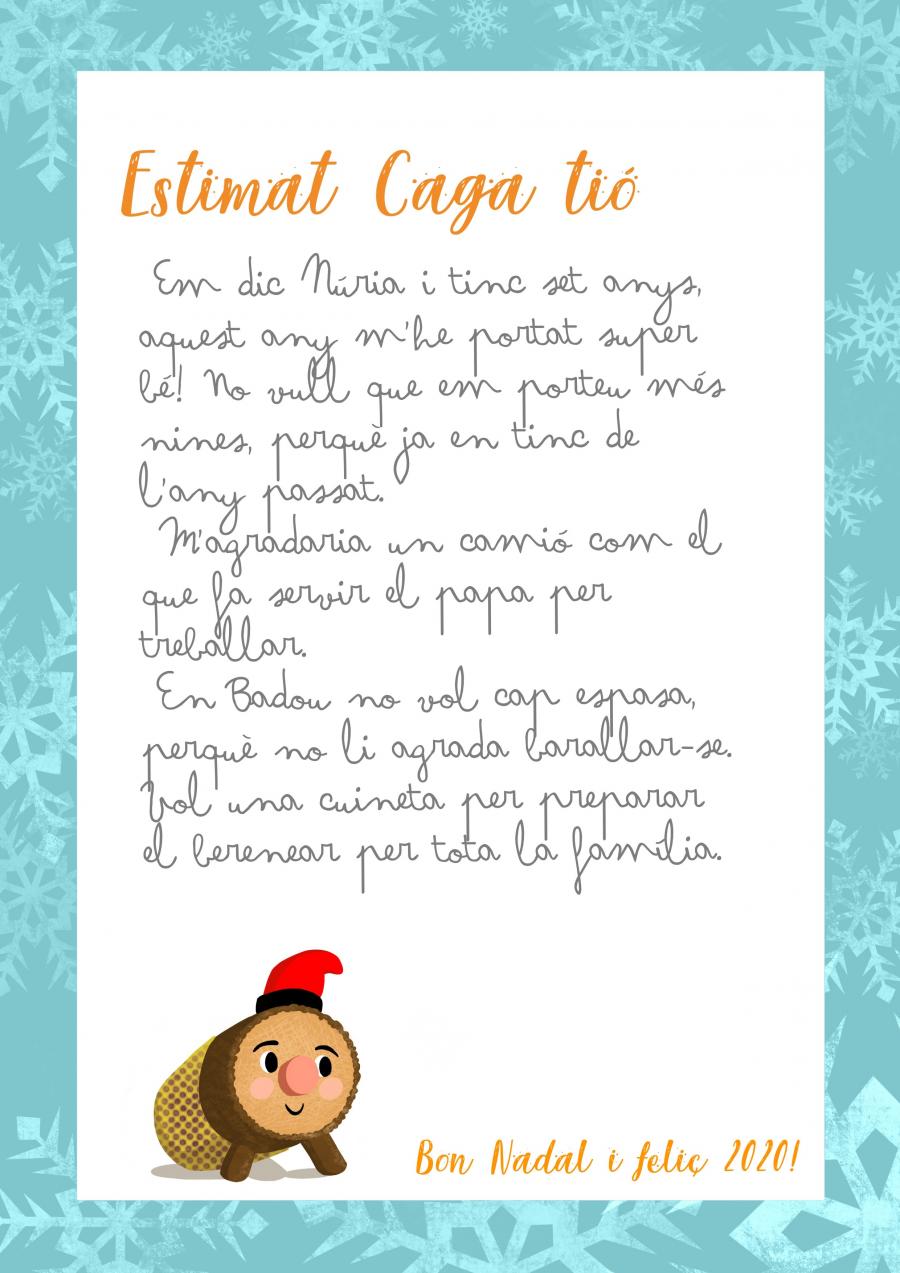 Estimat Caga tió
Em dic Núria i tinc set anys,
aquest any m'he portat super
bé! No vull que em porteu més
nines, perquè ja en tinc de
l'any passat.
M'agradaria un camió com el
que fa servir el papa per
treballar.
En Badou no vol cap espasa,
perquè no li agrada barallar-se.
Vol una cuineta per preparar
el berenear per tota la família.
Bon Nadal i feliç 2020!